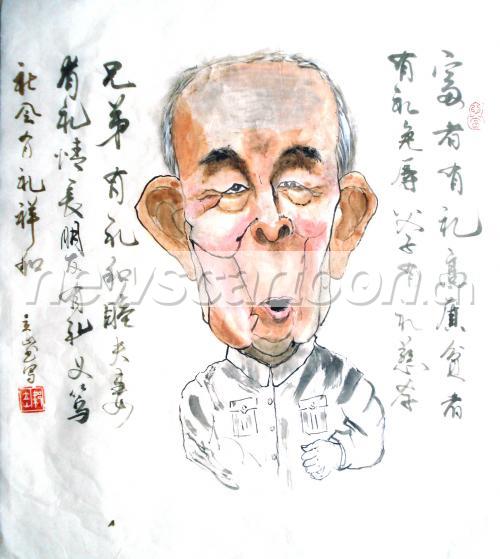 富者有礼高质贫者
有礼免辱父子有礼慈孝
兄弟有礼和睦夫妻
有礼情长朋友有礼义笃
社会有礼祥和
newscartoon.cn